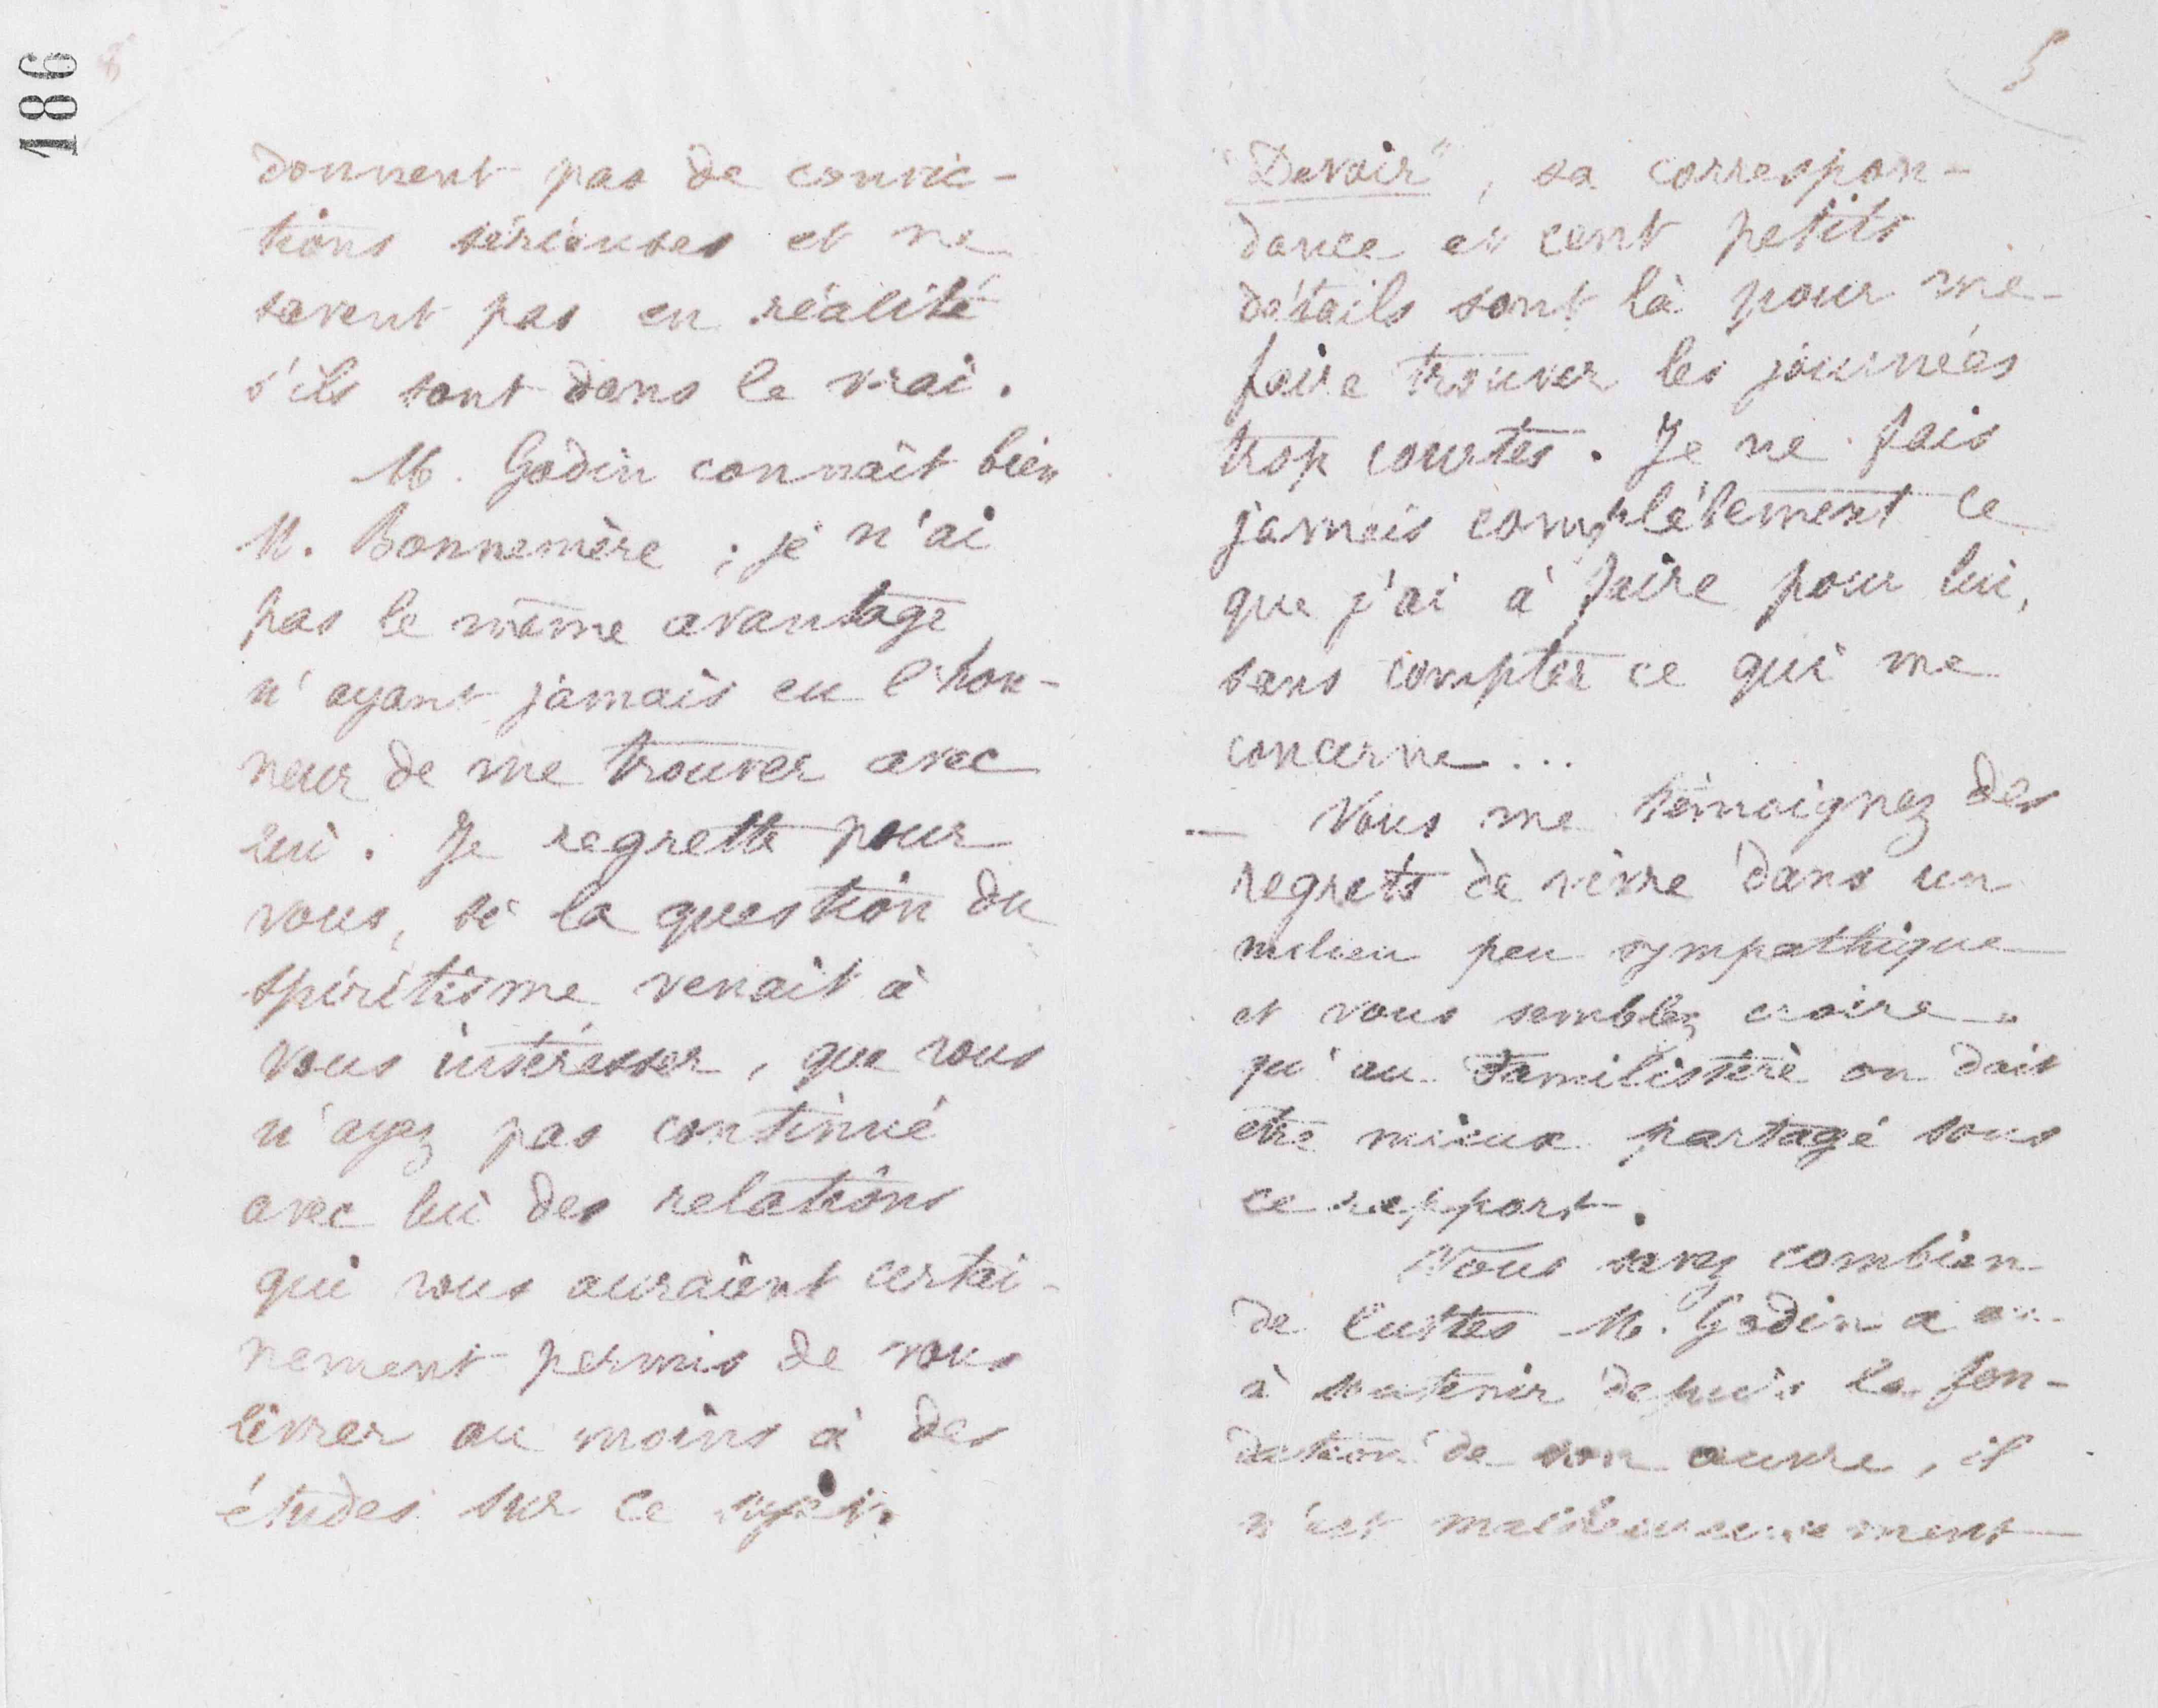 186
donnent pas de convic-
tions sérieuses et ne
savent pas en réalité
s'ils sont dans le vrai.
M. Godin connaît bien
M. Bonnemère ; je n'ai
pas le même avantage
n'ayant jamais eu l'hon-
neur de me trouver avec
lui. Je regrette pour
vous, si la question du
spiritisme venait à
vous intéresser, que vous
n'ayez pas continué
avec lui des relations
qui vous auraient certai-
nement permis de vous
livrer au moins à des
études sur ce sujet.
5
"Devoir", sa correspon-
dance et cent petits
détails sont là pour me
faire trouver les journées
trop courtes. Je ne fais
jamais complètement ce
que j'ai à faire pour lui,
sans compter ce qui me
concerne...
— Vous me témoignez des
regrets de vivre dans un
milieu peu sympathique
et vous semblez croire
qu'au Familistère on doit
être mieux partagé sous
ce rapport.
Vous savez combien
de luttes M. Godin a eu
à soutenir depuis la fon-
dation de son œuvre, il
n'est malheureusement